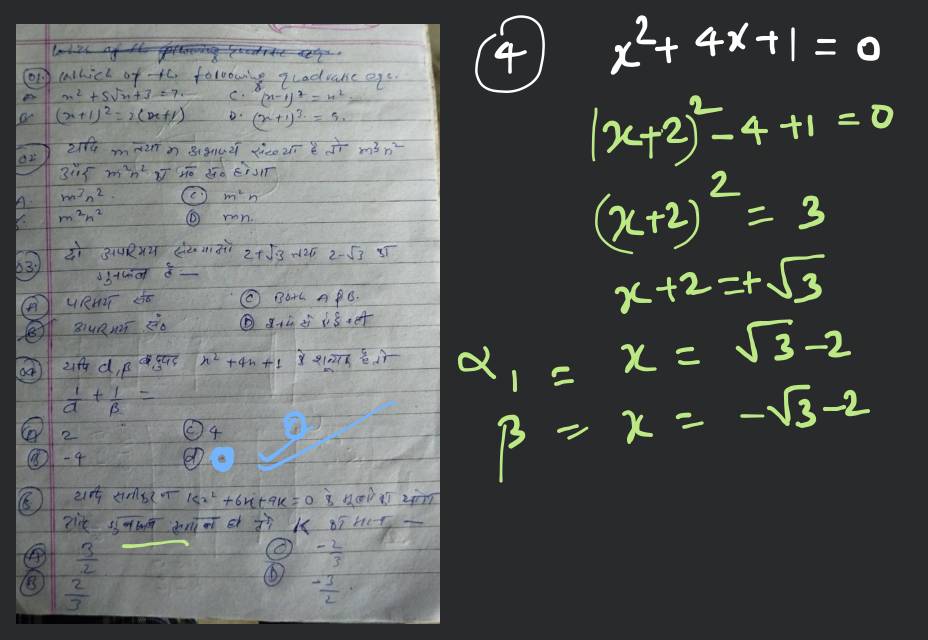 Q1. Which of the following quadratic eqn.
A. x² + 5√x + 3 = 7. C. (x-1)² = x².
B. (x+1)² = 2(x+1) D. (x+1)³ = 5.
Q2. यदि m तथा n अभाज्य संख्या है तो m³n²
और m²n² म० स० होगा
A. m³n². C. m²n
m²n² D mn.
Q3. दो अपरिमय संख्याओं 2+√3 तथा 2-√3 का
गुणनफल है —
A परिमय सं० C Both A & B.
B अपरिमय सं० D इनमें से कोई नहीं
Q4 यदि α, β बहुपद x² + 4x + 1 के शून्यक है तो
1/α + 1/β =
A 2 C 4
B -4 d 0
यदि समीकरण Kx² + 6x + 9K = 0 के मूलों का योग
और गुणनफल समान हो तो K का मान —
A 3/2 C -2/3
B 2/3 D -3/2.
4 x² + 4x + 1 = 0
(x+2)² - 4 + 1 = 0
(x+2)² = 3
x + 2 = ± √3
α, = x = √3 - 2
β = x = -√3 - 2